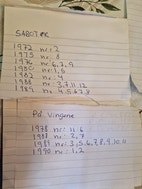 SABOTØR
1972 nr: 2
1975 nr: 3
1976 nr: 6, 7, 9
1980 nr: 1, 5
1982 nr: 4
1988 nr: 3, 7, 11, 12
1989 nr: 4, 5, 6, 7, 8
På Vingene
1978 nr: 11 6
1981 nr: 3, 5, 6, 7, 8, 9, 10, 11
1990 nr: 1, 2